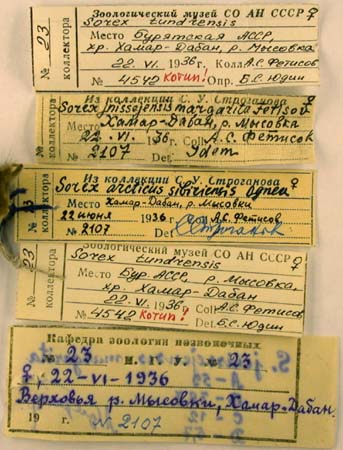 Зоологический музей СО АН СССР ♀
Sorex tundrensis
№ 23 коллектора
Место Бурятская АССР,
хр. Хамар-Дабан, р. Мысовка
22 VI. 1936г. Колл. А.С. Фетисов
№ 4542 котип! Опр. Б.С. Юдин
Из коллекции С. У. Строганова ♀
Sorex margarita Fetisov
коллектора
Хамар-Дабан, р. Мысовка
22. VI. 1936 г. Coll. А.С. Фетисов
№ 2107 Det. Idem
Из коллекции С. У. Строганова
Sorex arcticus sibiriensis Ognev
коллектора
Место Хамар-Дабан, р. Мысовки
22 июня 1936 г. Coll. А.С. Фетисов
№ 2107 Det. Строганов
Зоологический музей СО АН СССР ♀
Sorex tundrensis
№ коллектора
Место Бур. АССР, р. Мысовка,
хр. Хамар-Дабан
22. VI. 1936г. Coll. А.С. Фетисов
№ 4542 котип? Det. Б.С. Юдин
Кафедра зоологии позвоночных
№ 23 И. Г. У. № 23
♀, 22-VI-1936
Верховья р. Мысовки, Хамар-Дабан.
19 г. N 2107